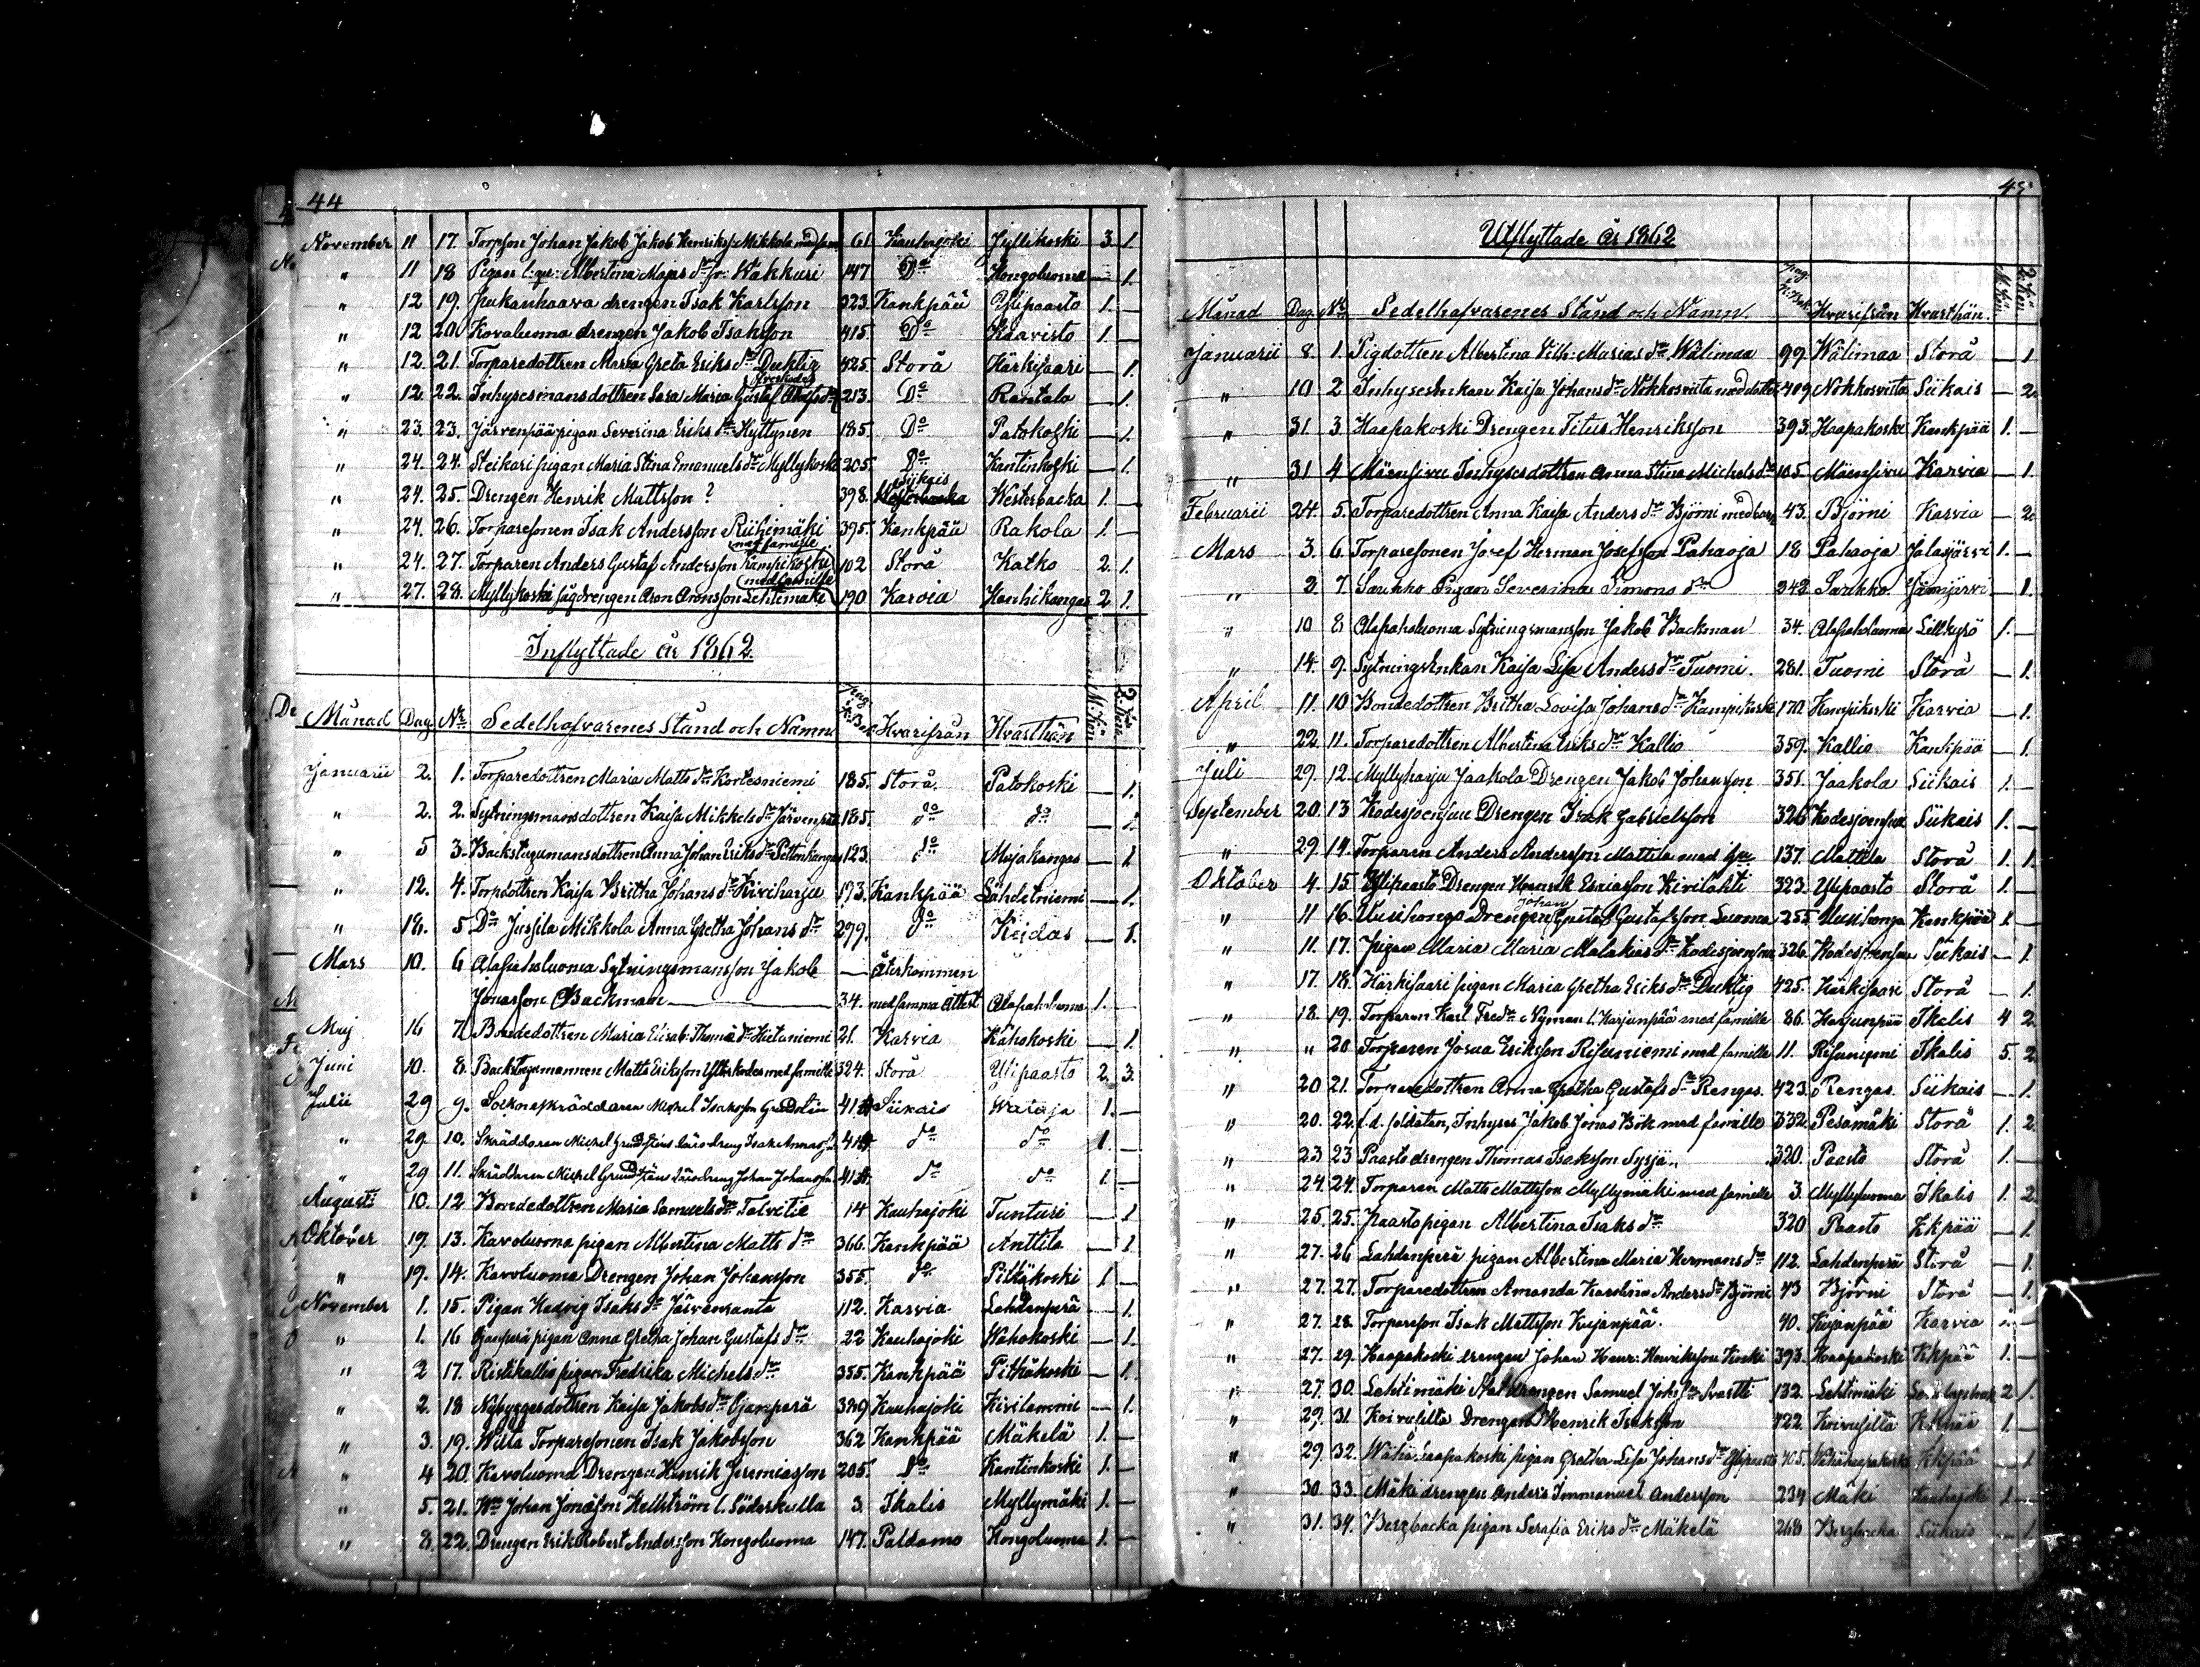 44
November 11 17. Torpson Johan Jakob Jakob Henrikss. Mikkola med fam 61 Kauhajoki Jyllikoski 3. 1.
" 11 18 Pigan Albertina Majas dr Wakkuri 147 Do Kongoluoma — 1.
" 12 19. Jukanhaava drengen Isak Karlsson 323. Kankpää Ylipaasto 1. —
" 12 20. Kovaluoma drengen Jakob Isaksson 415. Do Haavisto 1. —
" 12. 21. Torparedottren Maria Greta Eriks dr Ducktig 425. Storå Härkisaari — 1.
" 12 22. Inhysesmansdottren Sara Maria Gustaf 213. Do Rantala — 1.
" 23. 23. Järvenpää pigan Severina Eriks dr Kyttynen 185. Do Patokoski — 1.
" 24. 24. Steikari pigan Maria Stina Emanuels dr Myllykoski 205. Do Kantinkoski — 1.
Siikais
" 24. 25. Drengen Henrik Mattsson ? 398. Westerbacka 1. —
" 24. 26. Torparesonen Isak Andersson Riihimäki 395. Kankpää Rakola 1. —
med familie
" 24. 27. Torparen Anders Gustaf Andersson Kampikoski 102 Storå Katko 2. 1.
med familie
" 27. 28. Myllykoski sågdrengen Aron Aronsson Lehtimäki 190 Karvia Hanhikangas 2 1.
Inflyttade år 1862.
Månad Dag No Sedelhafvarenes Stånd och Namn pag. K. Bok Hvarifrån Hvarthän M. Kön Q. Kön
Januarii 2. 1. Torparedottren Maria Matts dr Kortesniemi 185. Storå. Patokoski — 1.
" 2. 2. Sytningsmansdottren Kaisa Mikkels dr Järvenpää 185. do do — 1.
" 5 3. Backstugumansdottren Anna Johan Eriks dr Pettenkangas 123. do Mujakangas — 1
" 12. 4. Torpdottren Kaisa Britha Johans dr Kiviharju 173. Kankpää Lähdetniemi — 1.
" 18. 5 Do Jussila Mikkola Anna Gretha Johans dr 299. do Keidas — 1.
Mars 10. 6 Alapaholuoma Sytningsmansson Jakob — återkommen
Jonasson Backman — 34. med samma Attest Alapaholuoma 1. —
Maj 16 7. Bondedottren Maria Elisab. Thomæ dr Hietaniemi 21. Karvia Kähokoski — 1.
Juni 10. 8. Backstugumannen Matts Eriksson med familie 324. Storå Ylipaasto 2. 3.
Julii 29 9. Socknaskräddaren Michel Isaksson Siikais Wataja 1. —
" 29. 10. Skräddaren Michel do do 1. —
" 29 11. Skräddaren Michel do do 1. —
Augusti 10. 12 Bondedottren Maria Samuels dr Talvitie 14 Kauhajoki Tunturi — 1
Oktober 19. 13. Kavoluoma pigan Albertina Matts dr 366. Kankpää Anttila — 1
" 19. 14. Kavoluoma Drengen Johan Johansson 355. do Pitkäkoski 1 —
November 1. 15. Pigan Hedvig Isaks dr Järvenranta 112. Karvia Lahdenperä — 1.
" 1. 16 Ojanperä pigan Anna Gretha Johan Gustafs dr 22 Kauhajoki Wähokoski — 1.
" 2 17. Ristikallio pigan Fredrika Michels dr 355. Kankpää Pitkäkoski — 1.
" 2. 18 Nybyggesdottren Kaisa Jakobs dr Ojanperä 389 Kauhajoki Kivilammi — 1.
" 3. 19. Wilta Torparesonen Isak Jakobsson 362 Kankpää Mäkelä 1. —
" 4 20. Kavoluoma Drengen Henrik Jeremiasson 205. Do Kantinkoski 1. —
" 5. 21. Johan Jonasson Hellström l. Söderkulla 3 Ikalis Myllymäki 1. —
" 8. 22. Drengen Erik Robert Andersson Kongoluoma 147. Paldamo Kongoluoma 1. —
45
Utflyttade år 1862
Månad Dag No Sedelhafvarenes Stånd och Namn. pag. K. Bok Hvarifrån Hvarthän. M. Kön Q. Kön
Januarii 8. 1. Pigdottren Albertina Vilh: Marias dr Wälimaa 99. Wälimaa Storå — 1
" 10 2 Inhysesenkan Kaisa Johans dr Nokkosviita med dotter 409 Nokkosviita Siikais — 2
" 31. 3. Haapakoski Drengen Titus Henriksson 393. Haapakoski Kankpää 1. —
" 31 4 Mäensivu Inhysesdottren Anna Stina Michels dr 105. Mäensivu Karvia — 1.
Februarii 24. 5. Torparedottren Anna Kaisa Anders dr Björni med barn 43. Björni Karvia — 2
Mars 3. 6. Torparesonen Josef Herman Josefsson Pahaoja 18 Pahaoja Jalasjärvi 1. —
" 3. 7. Sarikko Pigan Severina Simons dr 242 Sarikko Jämijärvi — 1.
" 10 8 Alapaholuoma Sytningsmansson Jakob Backman 34. Alapaholuoma Lillkyrö 1. —
" 14. 9. Sytningsenkan Kaisa Lisa Anders dr Tuomi. 281. Tuomi Storå — 1.
April 11. 10 Bondedottren Britha Lovisa Johans dr Kampikoski Kampikoski Karvia — 1.
" 22. 11. Torparedottren Albertina Eriks dr Kallio 359. Kallio Kankpää — 1.
Juli 29. 12. Myllyharju Jaakola Drengen Jakob Johansson 351. Jaakola Siikais 1. —
September 20. 13 Kodesjoensuu Drengen Isak Gabrielsson 326 Kodesjoensuu Siikais 1. —
" 29. 14. Torparen Anders Andersson Mattila med 137. Mattila Storå 1. 1.
Oktober 4. 15. Ylipaasto Drengen Henrik Esaiasson Kivilahti 323. Ylipaasto Storå 1. —
Johan
" 11 16. Uusihonga Drengen Gustaf Gustafsson Luoma 255 Uusihonga Kankpää 1 —
" 11. 17. Pigan Maria Maria Malakias dr Kodesjoensuu 326. Kodesjoensuu Siikais — 1
" 17. 18. Härkisaari pigan Maria Gretha Eriks dr Ducktig 425. Härkisaari Storå — 1.
" 18. 19. Torparen Karl Fredr. Nyman l. Karjunpää med familie 86. Karjunpää Ikalis 4 2.
" " 20. Torparen Josua Eriksson Risuniemi med familie 11. Risuniemi Ikalis 5. 2
" 20 21. Torparedottren Anna Gretha Gustafs dr Rengas. 423. Rengas. Siikais — 1.
" 20. 22. f. d. soldaten, Inhyses Jakob Jonas Bök med familie 332. Pesämäki Storå 1. 2.
" 23 23 Paasto drengen Thomas Isaksson Sysjä. 320. Paasto Storå 1. —
" 24. 24. Torparen Matts Mattsson Myllymäki med familie 3. Myllyluoma Ikalis 1. 2.
" 25. 25. Paasto pigan Albertina Isaks dr 320 Paasto Kkpää — 1
" 27. 26 Lahdenperä pigan Albertina Maria Hermans dr 112. Lahdenperä Storå — 1.
" 27. 27. Torparedottren Amanda Karolina Anders dr Björni 43 Björni Storå — 1.
" 27. 28. Torparson Isak Mattsson Kujanpää. 40. Kujanpää Karvia 1. —
" 27. 29. Haapakoski drengen Johan Henr: Henriksson Koski 393 Haapakoski Kkpää 1. —
" 27. 30. Lehtimäki Stal drengen Samuel Johss. Svartti 132. Lehtimäki 2 1.
" 29. 31. Koivusilta Drengen Henrik Isaksson 422. Koivusilta Kkpää 1 —
" 29. 32. Wähä haapakoski pigan Gretha Lisa Johans dr 405. Wähähaapakoski Kkpää — 1
" 30. 33. Mäki drengen Anders Immanuel Andersson 234 Mäki Kauhajoki 1 —
" 31. 34. Bergbacka pigan Serafia Eriks dr Mäkelä 268 Bergbacka Siikais — 1